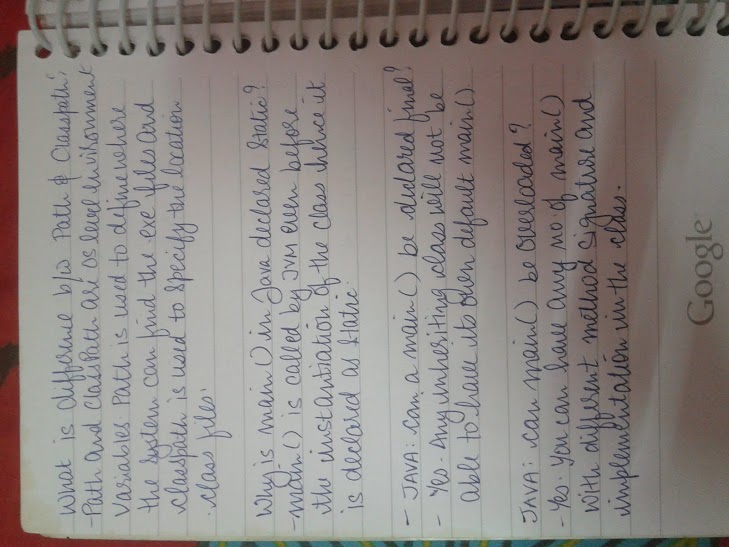 What is difference b/w Path & Classpath?
- Path and ClassPath are OS level environment
Variables Path is used to define where
the system can find the .exe files and
classpath is used to specify the location
.class files.
Why is main() in Java declared Static?
- main() is called by JVM even before
the instantiation of the class hence it
is declared as static.
- JAVA: can a main() be declared final?
- Yes. Any inheriting class will not be
able to have its own default main()
JAVA: can main() be overloaded?
- Yes. You can have any no. of main()
with different method signature and
implementation in the class.
Google